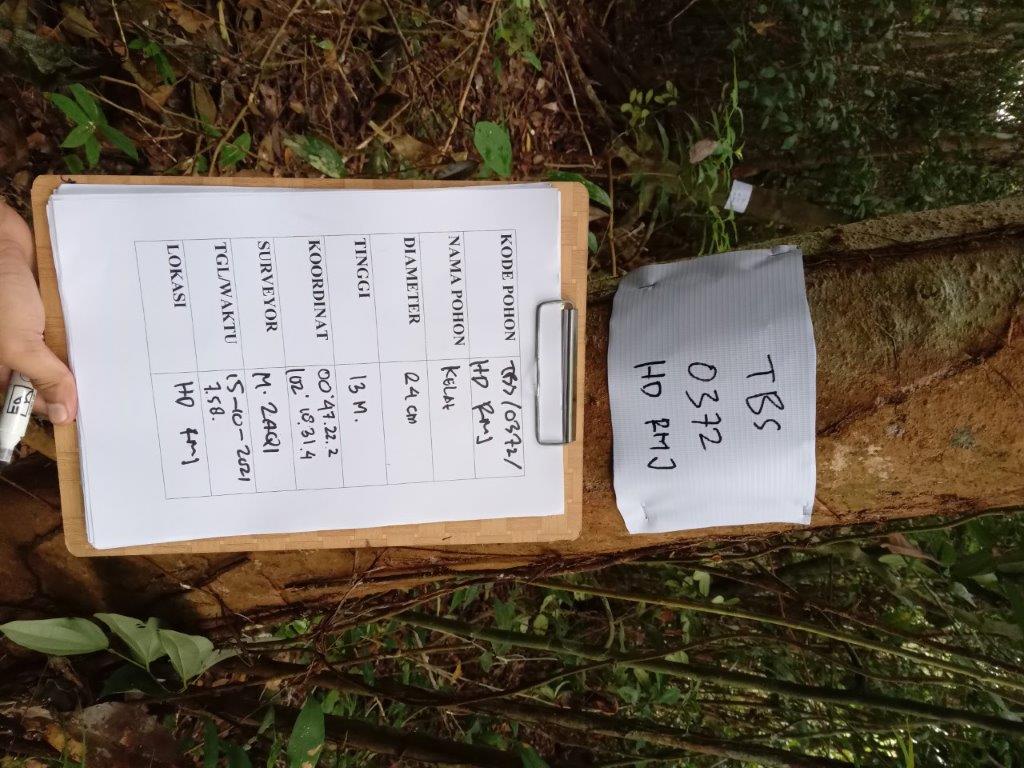 TBS
0372
HD RMJ
KODE POHON TBS/0372/
HD RMJ
NAMA POHON KELAt
DIAMETER 24 cm
TINGGI 13 M.
KOORDINAT 00°47.22.2
102° 18.31.4
SURVEYOR M. ZAQI
TGL/WAKTU 15-10-2021
7.58.
LOKASI HD RMJ